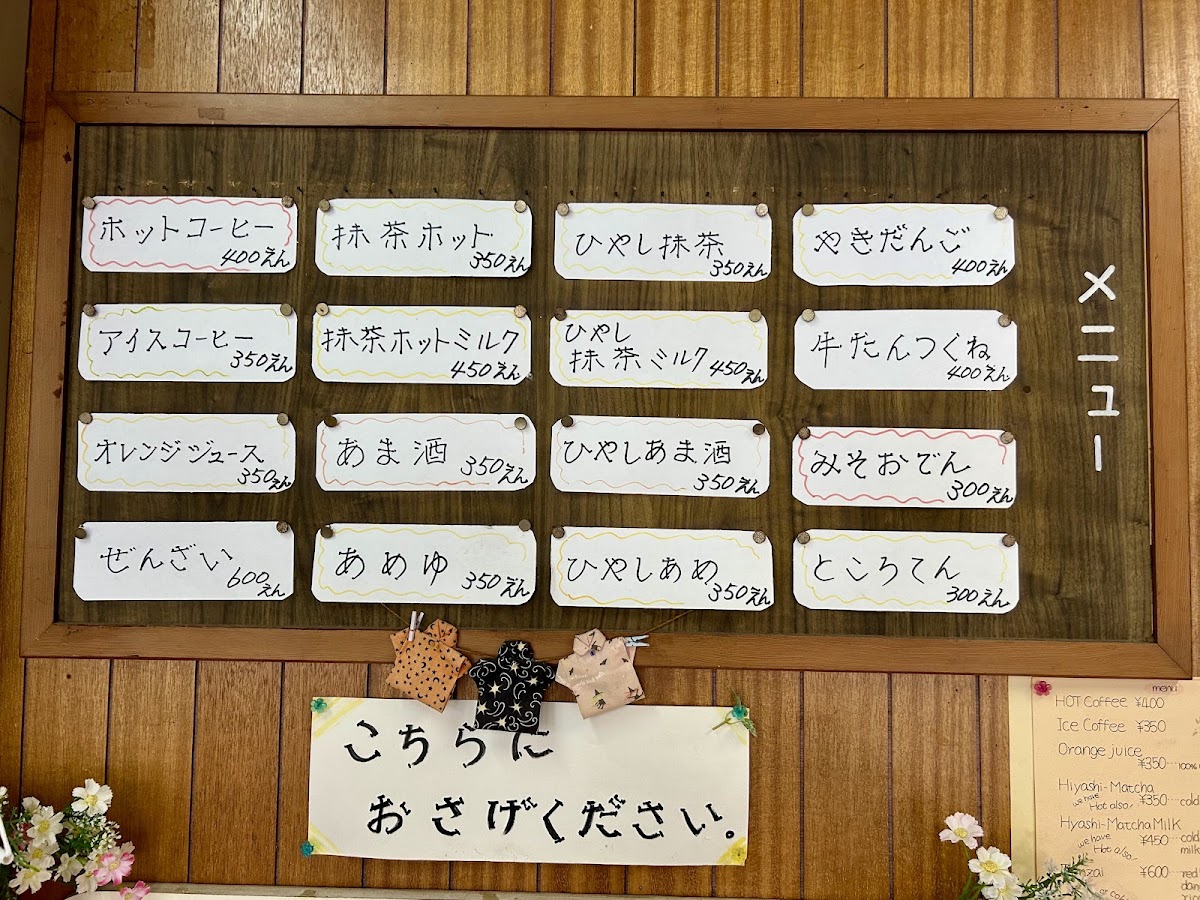 メニュー
ホットコーヒー
400えん
抹茶ホット
350えん
ひやし抹茶
350えん
やきだんご
400えん
アイスコーヒー
350えん
抹茶ホットミルク
450えん
ひやし
抹茶ミルク 450えん
牛たんつくね
400えん
オレンジジュース
350えん
あま酒 350えん
ひやしあま酒
350えん
みそおでん
300えん
ぜんざい
600えん
あめゆ 350えん
ひやしあめ
350えん
ところてん
300えん
こちらに
おさげください。
menu
HOT Coffee ¥400
Ice Coffee ¥350
Orange juice
¥350 100%
Hiyashi-Matcha
we have Hot also ¥350 cold
Hyashi-Matcha Milk
we have Hot also ¥450 cold
milk
¥600 red